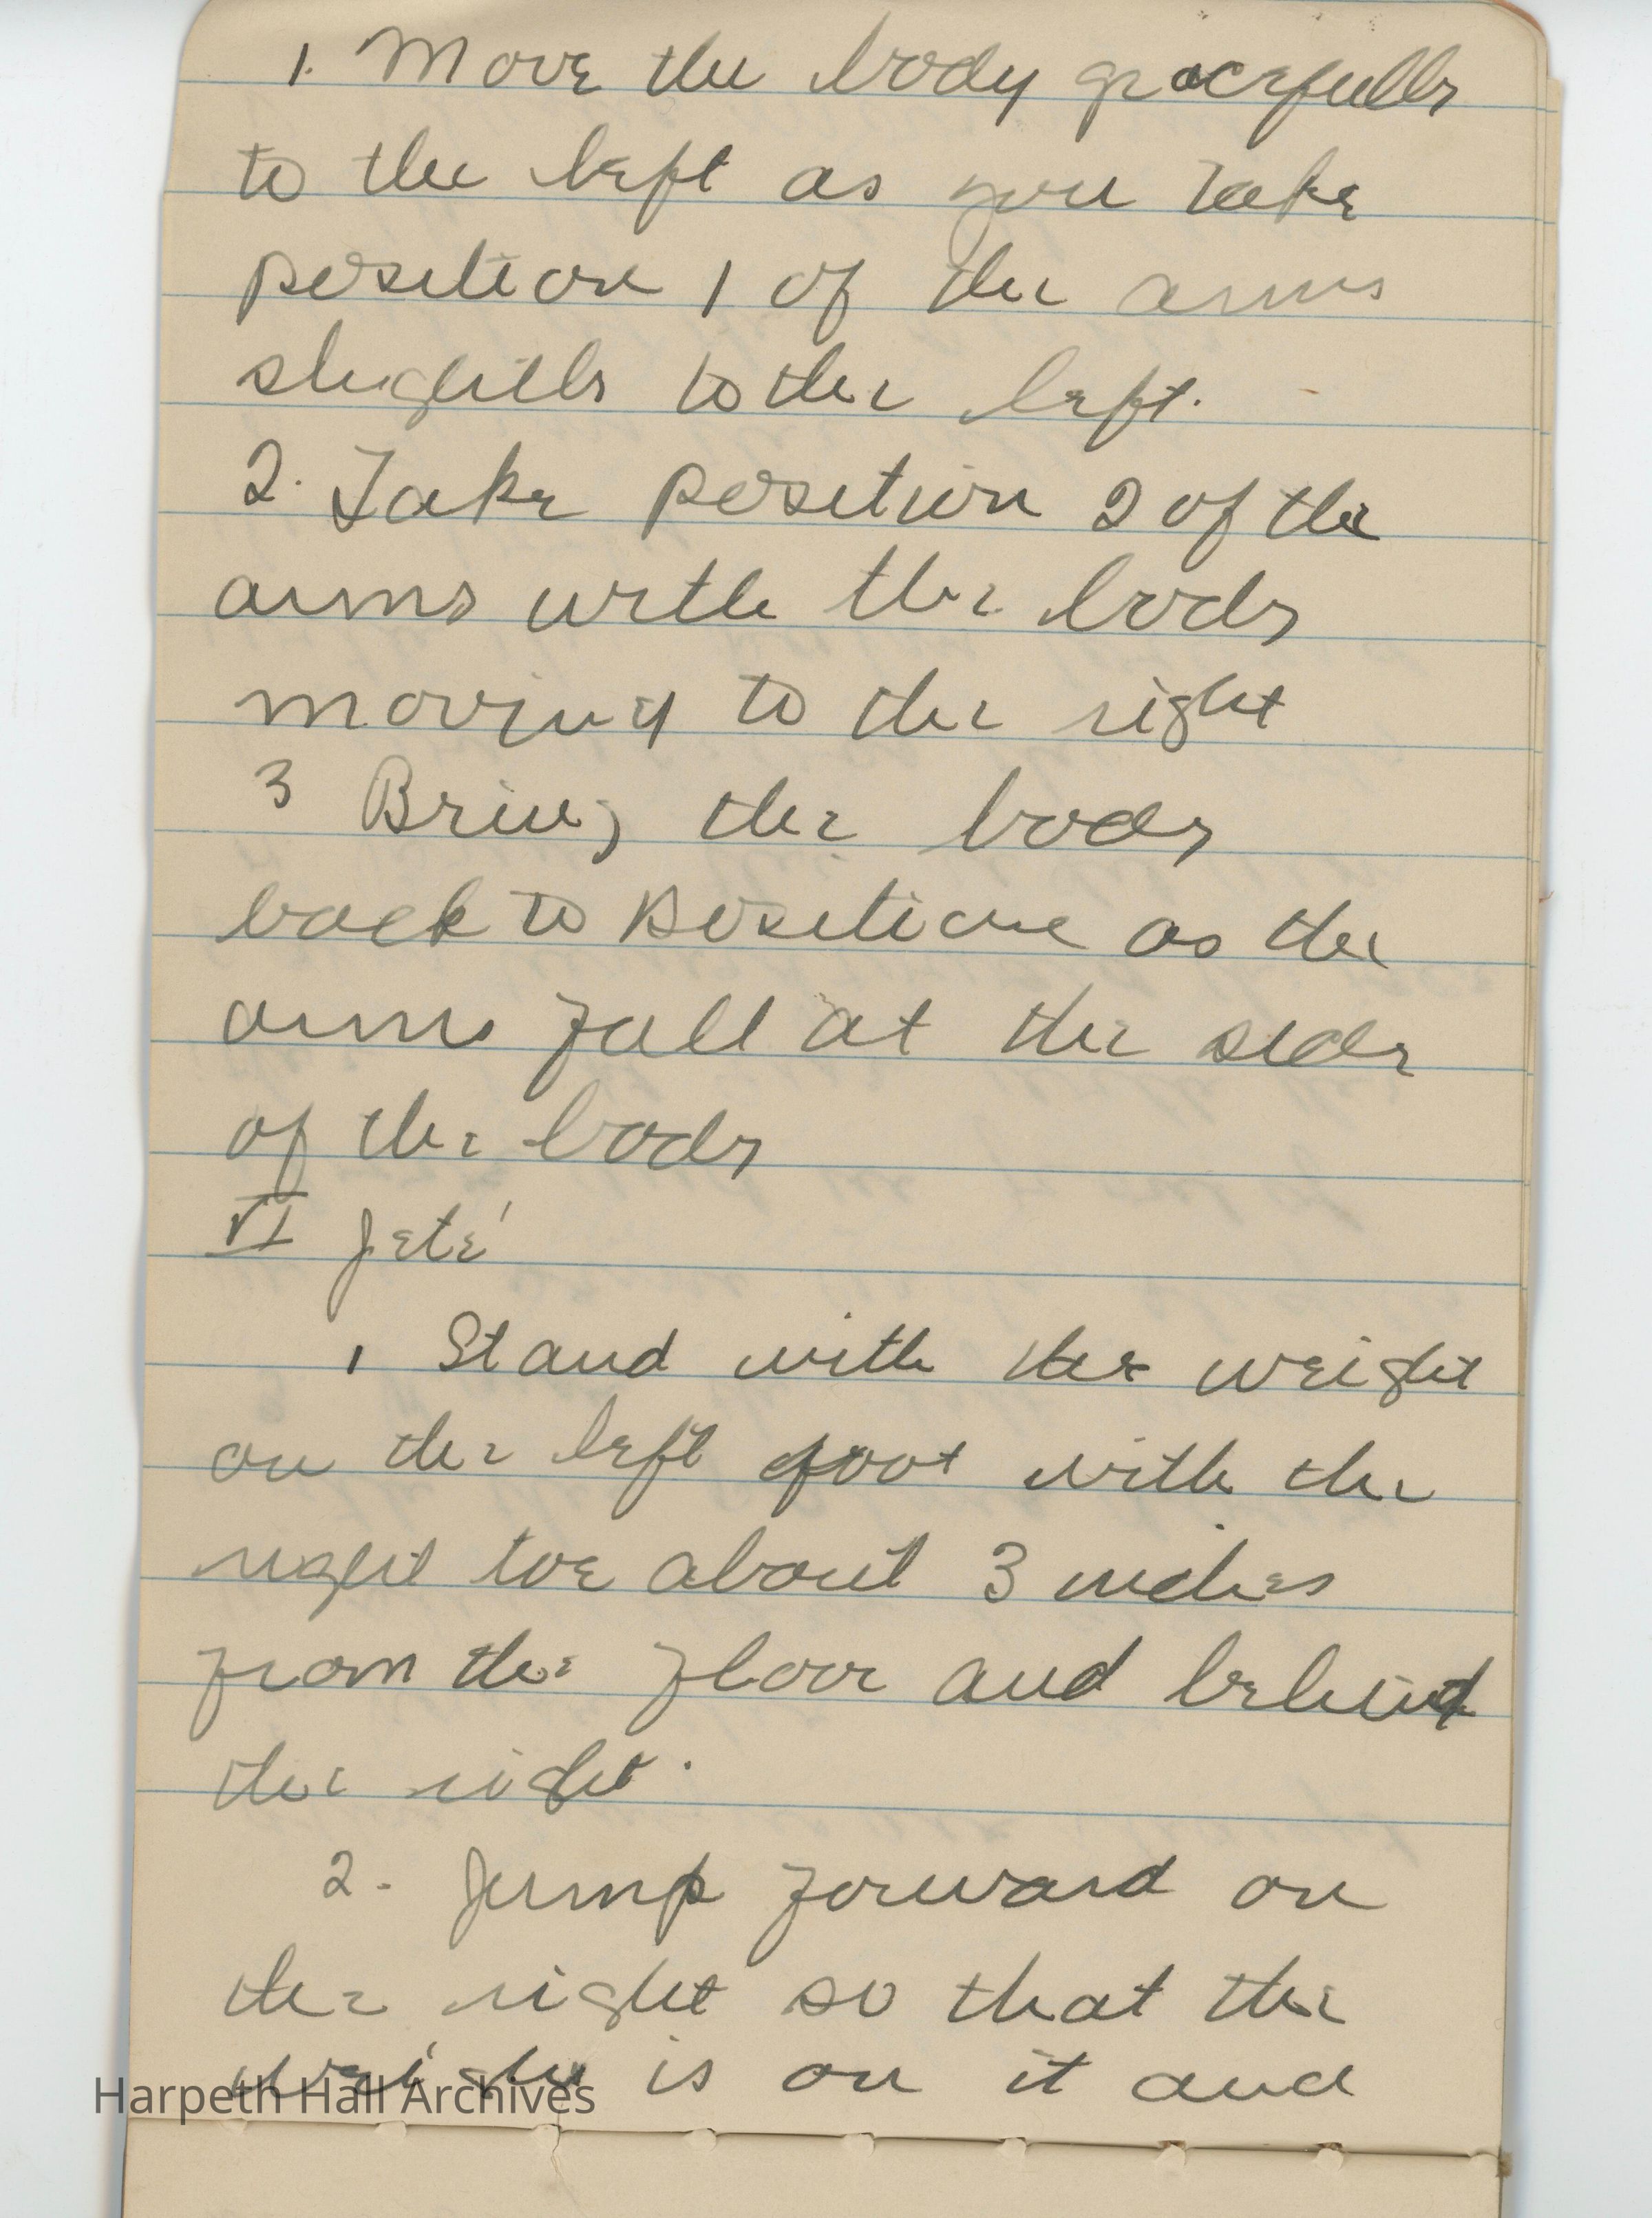 1. Move the body gracefully
to the left as you take
position 1 of the arms
slightly to the left.
2. Take position 2 of the
arms with the body
moving to the right
3 Bring the body
back to position as the
arms fall at the side
of the body
VI Jeté
1 Stand with the weight
on the left foot with the
right toe about 3 inches
from the floor and behind
the right.
2. Jump forward on
the right so that the
weight is on it and
Harpeth Hall Archives